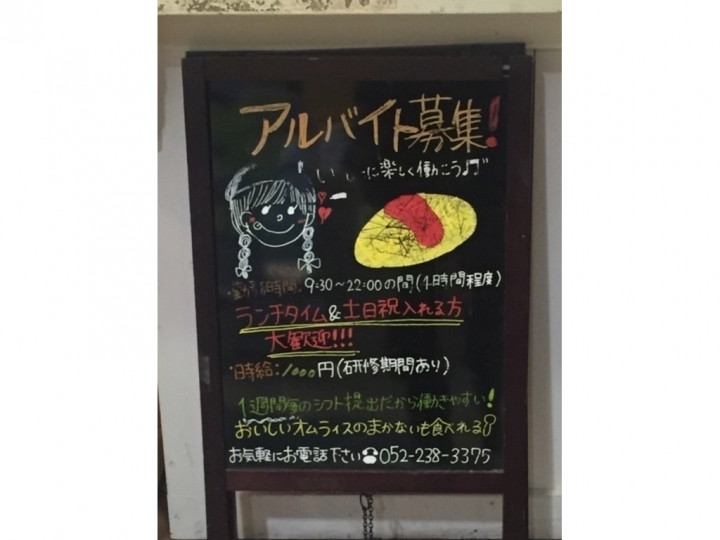 アルバイト募集!
に楽しく働こう♫
時間:9:30~22:00の間(4時間程度)
ランチタイム&土日祝入れる方
大歓迎!!!
・時給:1000円(研修期間あり)
1週間毎のシフト提出だから働きやすい!
おいしいオムライスのまかないも食べれる
お気軽にお電話下さい☎052-238-3375